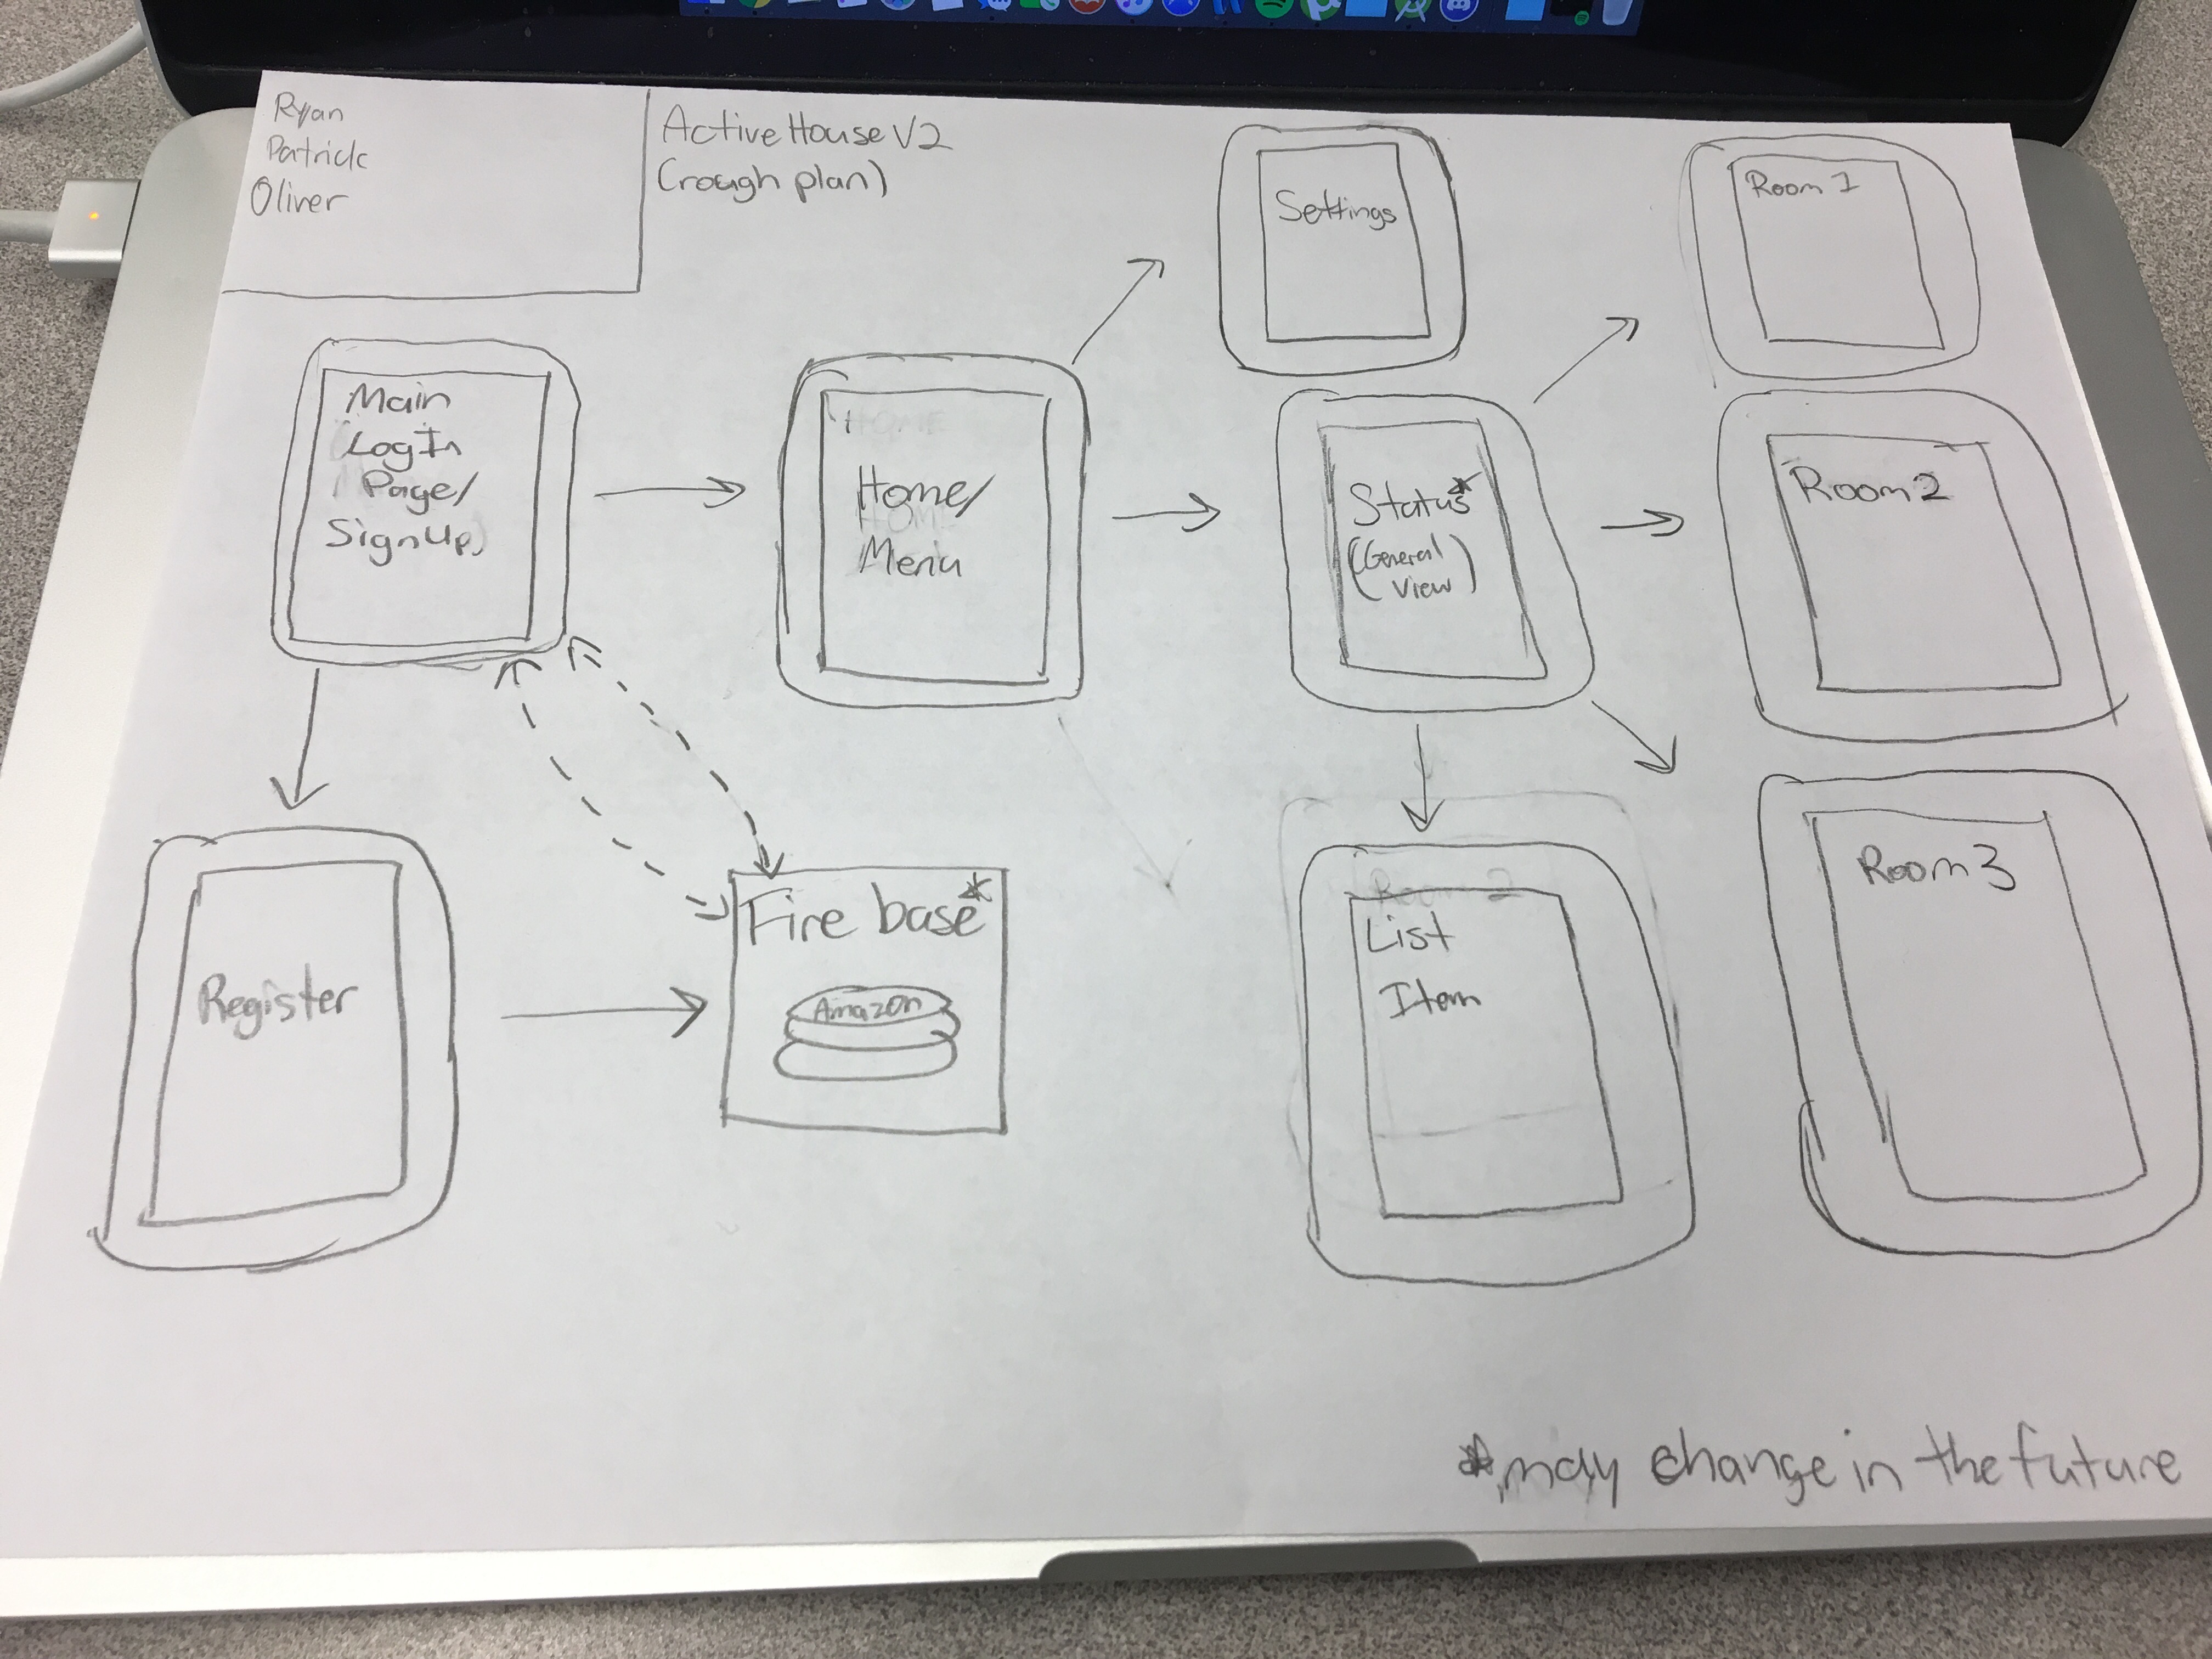 Ryan
Patrick
Oliver
Active House V2
(rough plan)
Settings
Room 1
Main
LogIn
Page/
SignUp
HOME
Home/
HOME
Menu
Status*
(General
View)
Room 2
Register
Fire base*
Amazon
Room 2
List
Item
Room 3
*may change in the future